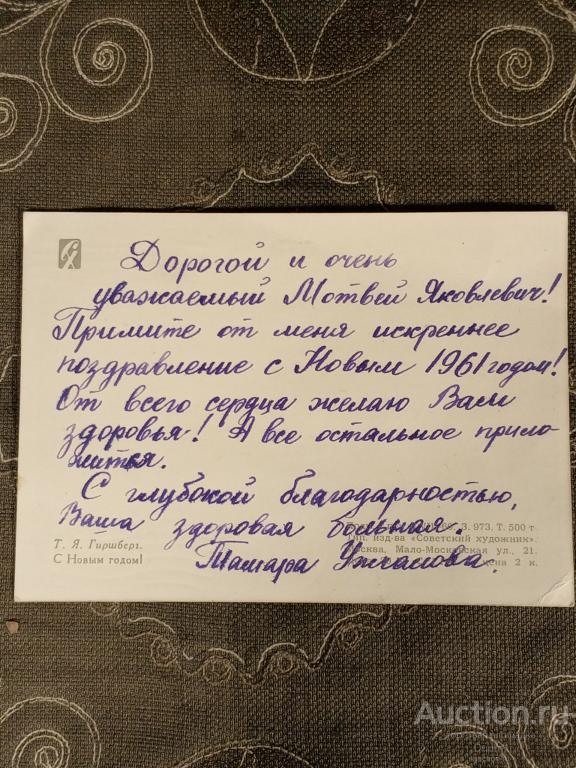 Дорогой и очень
уважаемый Матвей Яковлевич!
Примите от меня искреннее
поздравление с Новым 1961 годом!
От всего сердца желаю Вам
здоровья! А все остальное прило-
жится.
С глубокой благодарностью,
Ваша здоровая больная.
Тамара
Т. Я. Гиршберг.
С Новым годом!
З. 973, Т. 500 т
Тип. изд-ва «Советский художник».
Москва, Мало-Московская ул., 21.
цена 2 к.
Auction.ru